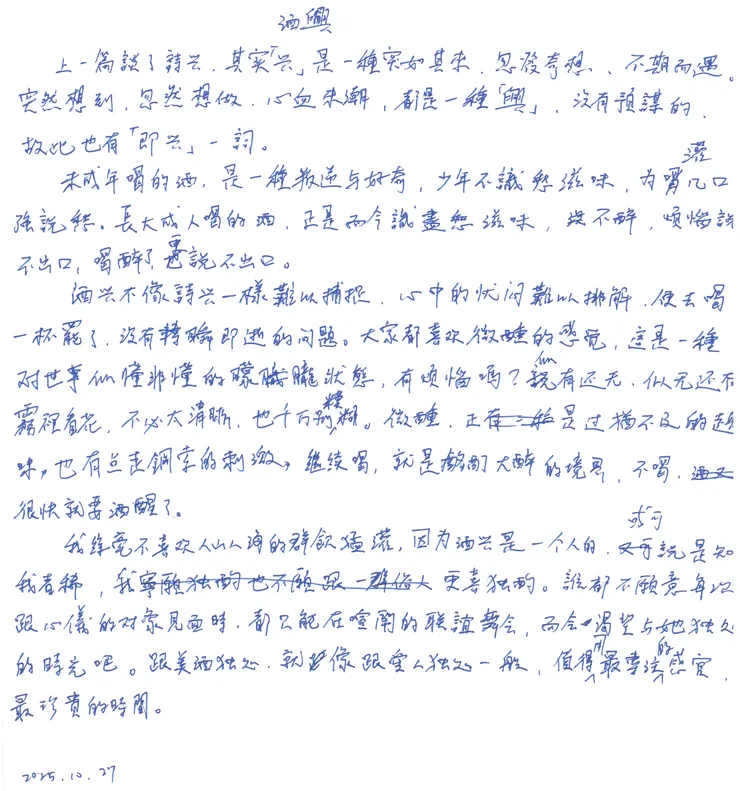 酒興
上一篇談了詩兴，其實「兴」是一種突如其来、忽發奇想、不期而遇。
突然想到，忽然想做，心血来潮，都是一種「興」，沒有預謀的，
故此也有「即兴」一詞。
未成年喝的酒，是一種叛逆与好奇，少年不識愁滋味，为灌几口
強說愁。長大成人喝的酒，正是而今識盡愁滋味，喝不醉，煩惱說
不出口，喝醉了，更說不出口。
酒兴不像詩兴一樣難以捕捉，心中的忧闷難以排解，便去喝
一杯罷了，沒有轉瞬即逝的问題。大家都喜欢微醺的感觉，這是一種
对世事似懂非懂的朦朧狀態，有煩惱嗎？似有还无，似无还有
霧裡看花，不必太清晰，也千万别糢糊。微醺，正是过猶不及的趣
味，也有点走鋼索的刺激，继续喝，就是酩酊大醉的境界，不喝，
很快就要酒醒了。
我總覺不喜欢人山人海的群飲猛灌，因为酒兴是一个人的，或可說是知
我者稀，更喜独酌。誰都不願意每次
跟心儀的对象見面時，都只能在喧闹的联誼舞会，而会渴望与她独处
的時光吧。跟美酒独处，就像跟愛人独处一般，值得用最專注的感官，
最珍貴的時間。
2025.10.27